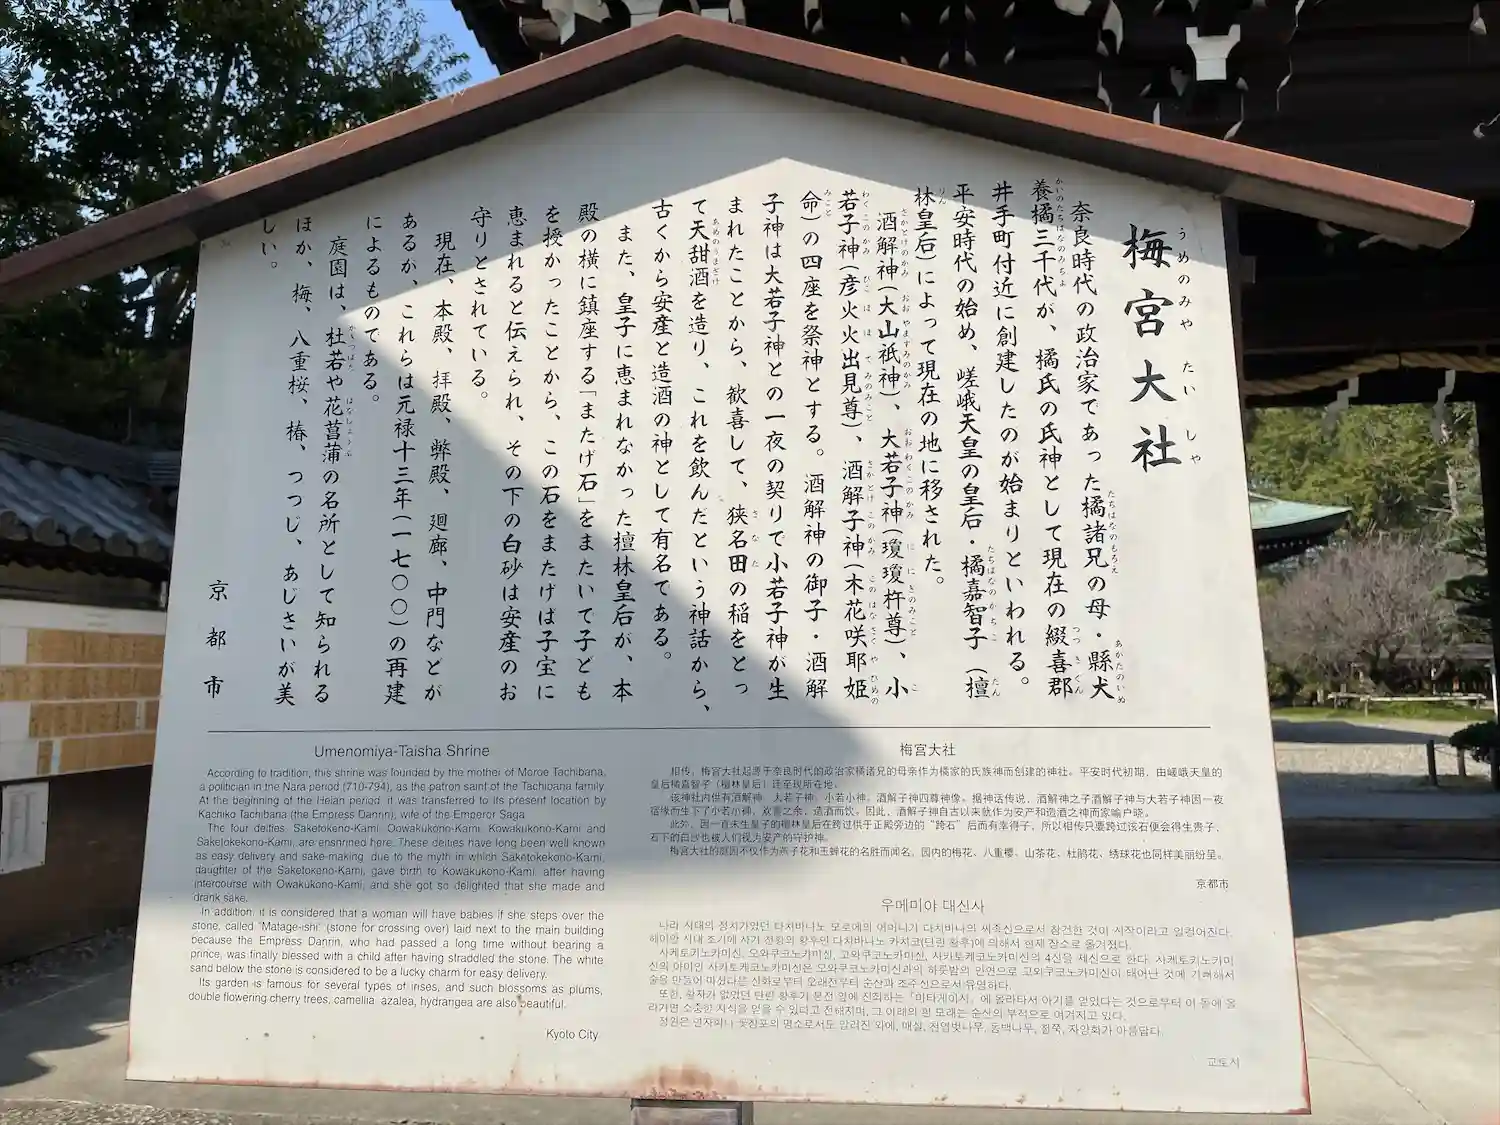 梅宮大社
うめのみや たいしゃ
奈良時代の政治家であった橘諸兄の母・縣犬
養橘三千代が、橘氏の氏神として現在の綴喜郡
井手町付近に創建したのが始まりといわれる。
平安時代の始め、嵯峨天皇の皇后・橘嘉智子（檀
林皇后）によって現在の地に移された。
酒解神（大山祇神）、大若子神（瓊瓊杵尊）、小
若子神（彦火火出見尊）、酒解子神（木花咲耶姫
命）の四座を祭神とする。酒解神の御子・酒解
子神は大若子神との一夜の契りで小若子神が生
まれたことから、歓喜して、狭名田の稲をとっ
て天甜酒を造り、これを飲んだという神話から、
古くから安産と造酒の神として有名である。
また、皇子に恵まれなかった檀林皇后が、本
殿の横に鎮座する「またげ石」をまたいで子ども
を授かったことから、この石をまたげば子宝に
恵まれると伝えられ、その下の白砂は安産のお
守りとされている。
現在、本殿、拝殿、弊殿、廻廊、中門などが
あるが、これらは元禄十三年（一七〇〇）の再建
によるものである。
庭園は、杜若や花菖蒲の名所として知られる
ほか、梅、八重桜、椿、つつじ、あじさいが美
しい。
京都市
Umenomiya-Taisha Shrine
According to tradition, this shrine was founded by the mother of Moroe Tachibana,
a politician in the Nara period (710-794), as the patron saint of the Tachibana family.
At the beginning of the Heian period, it was transferred to its present location by
Kachiko Tachibana (the Empress Danrin), wife of the Emperor Saga.
The four deities, Saketokeno-Kami, Oowakukono-Kami, Kowakukono-Kami and
Saketokekono-Kami, are enshrined here. These deities have long been well known
as easy delivery and sake-making, due to the myth in which Saketokekono-Kami,
daughter of the Saketokeno-Kami, gave birth to Kowakukono-Kami, after having
intercourse with Owakukono-Kami, and she got so delighted that she made and
drank sake.
In addition, it is considered that a woman will have babies if she steps over the
stone, called "Matage-ishi" (stone for crossing over) laid next to the main building
because the Empress Danrin, who had passed a long time without bearing a
prince, was finally blessed with a child after having straddled the stone. The white
sand below the stone is considered to be a lucky charm for easy delivery.
Its garden is famous for several types of irises, and such blossoms as plums,
double flowering cherry trees, camellia, azalea, hydrangea are also beautiful.
Kyoto City
梅宫大社
相传，梅宫大社起源于奈良时代的政治家橘诸兄的母亲作为橘家的氏族神而创建的神社。平安时代初期，由嵯峨天皇的
皇后橘嘉智子（檀林皇后）迁至现所在地。
该神社内供有酒解神、大若子神、小若子神、酒解子神四尊神像。据神话传说，酒解神之子酒解子神与大若子神因一夜
宿缘而生下了小若子神，欢喜之余，造酒而饮。因此，酒解子神自古以来就作为安产和造酒之神而家喻户晓。
此外，因一直未生皇子的檀林皇后在跨过供于正殿旁边的“跨石”后而有幸得子，所以相传只要跨过该石便会得生贵子，
石下的白沙也被人们视为安产的守护神。
梅宫大社的庭园不仅作为燕子花和玉蝉花的名胜而闻名，园内的梅花、八重樱、山茶花、杜鹃花、绣球花也同样美丽纷呈。
京都市
우메미야 대신사
나라 시대의 정치가였던 타치바나노 모로에의 어머니가 다치바나의 씨족신으로서 창건한 것이 시작이라고 일컬어진다.
헤이안 시대 초기에 사가 천황의 황후인 다치바나노 카치코(단린 황후)에 의해서 현재 장소로 옮겨졌다.
사케토키노카미신, 오와쿠코노카미신, 고와쿠코노카미신, 사카토케코노카미신의 4신을 제신으로 한다.
또한, 황자가 없었던 단린 황후가
교토시